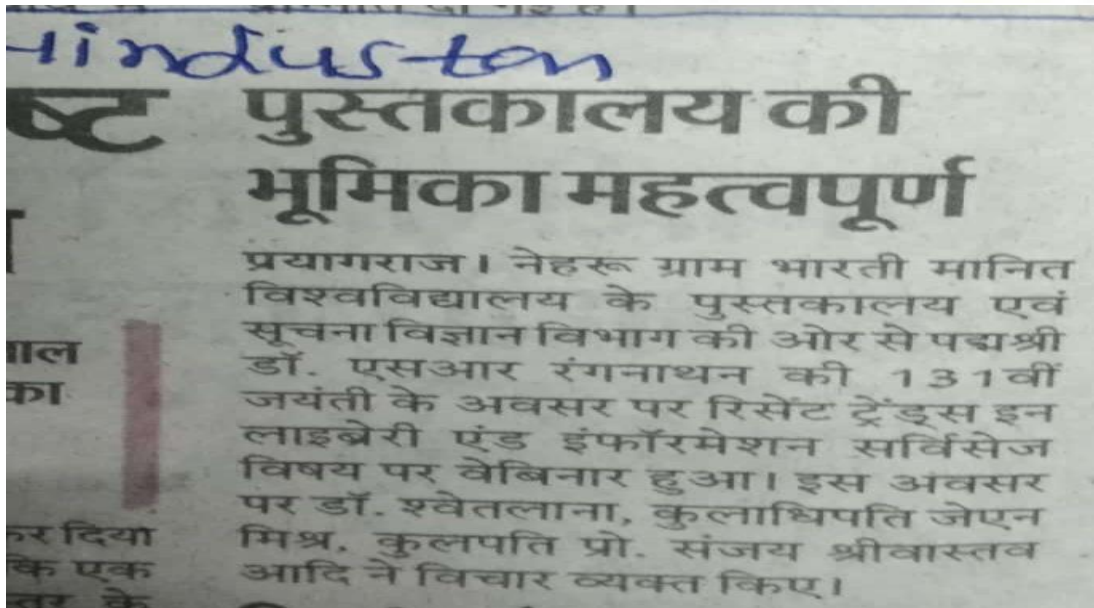 Hinduston
पुस्तकालय की
भूमिका महत्वपूर्ण
प्रयागराज। नेहरू ग्राम भारती मानित
विश्वविद्यालय के पुस्तकालय एवं
सूचना विज्ञान विभाग की ओर से पद्मश्री
डॉ. एसआर रंगनाथन की 131वीं
जयंती के अवसर पर रिसेंट ट्रेंड्स इन
लाइब्रेरी एंड इंफॉरमेशन सर्विसेज
विषय पर वेबिनार हुआ। इस अवसर
पर डॉ. श्वेतलाना, कुलाधिपति जेएन
मिश्र, कुलपति प्रो. संजय श्रीवास्तव
आदि ने विचार व्यक्त किए।
ष्ट
ाल
का
कर दिया
कि एक
स्तर के